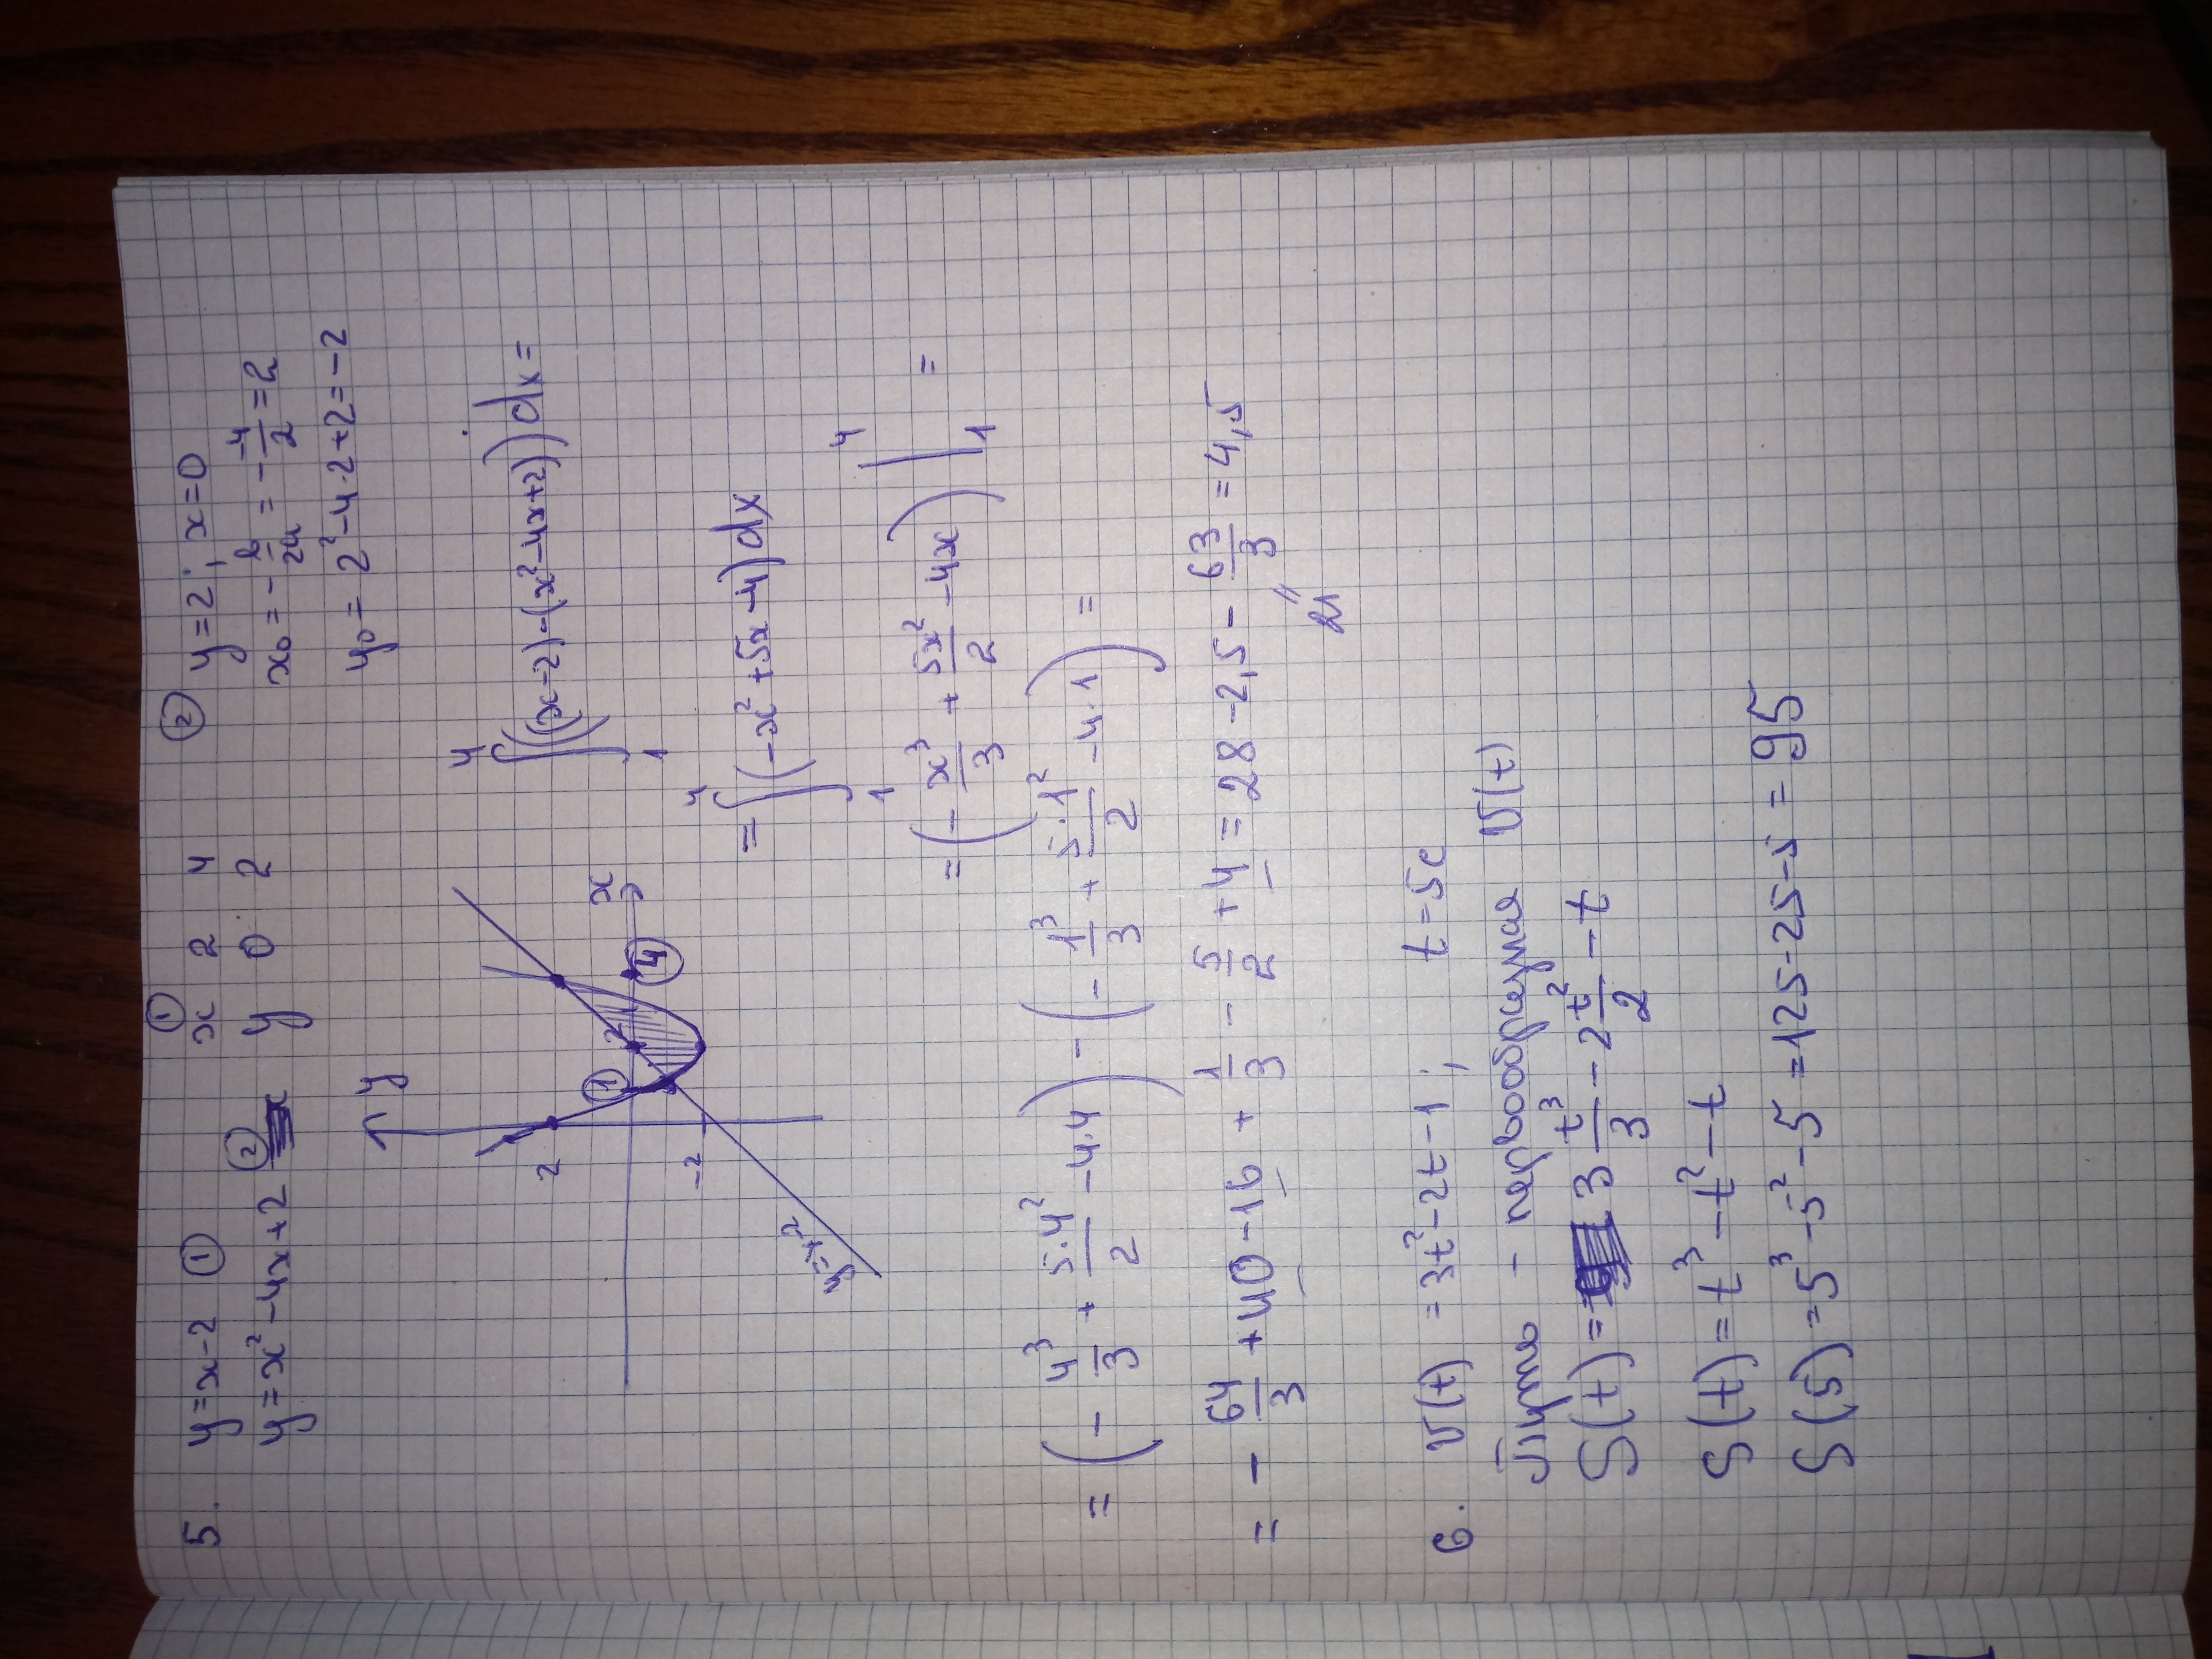 5. y=x-2 ① ① x 2 4 ② y=2; x=0
y=x²-4x+2 ② y 0 2 x₀=-b/2a=-(-4)/2=2
y₀=2²-4·2+2=-2
y
2
① 2 ④ x
-2
∫₁⁴((x-2)-(x²-4x+2))dx=
=∫₁⁴(-x²+5x-4)dx
=(-x³/3+5x²/2-4x)|₁⁴=
=(-4³/3+5·4²/2-4·4)-(-1³/3+5·1²/2-4·1)=
=-64/3+40-16+1/3-5/2+4=28-2,5-63/3=4,5
21
6. v(t)=3t²-2t-1; t=5c
Путь - первообразная v(t)
S(t)=3t³/3-2t²/2-t
S(t)=t³-t²-t
S(5)=5³-5²-5=125-25-5=95